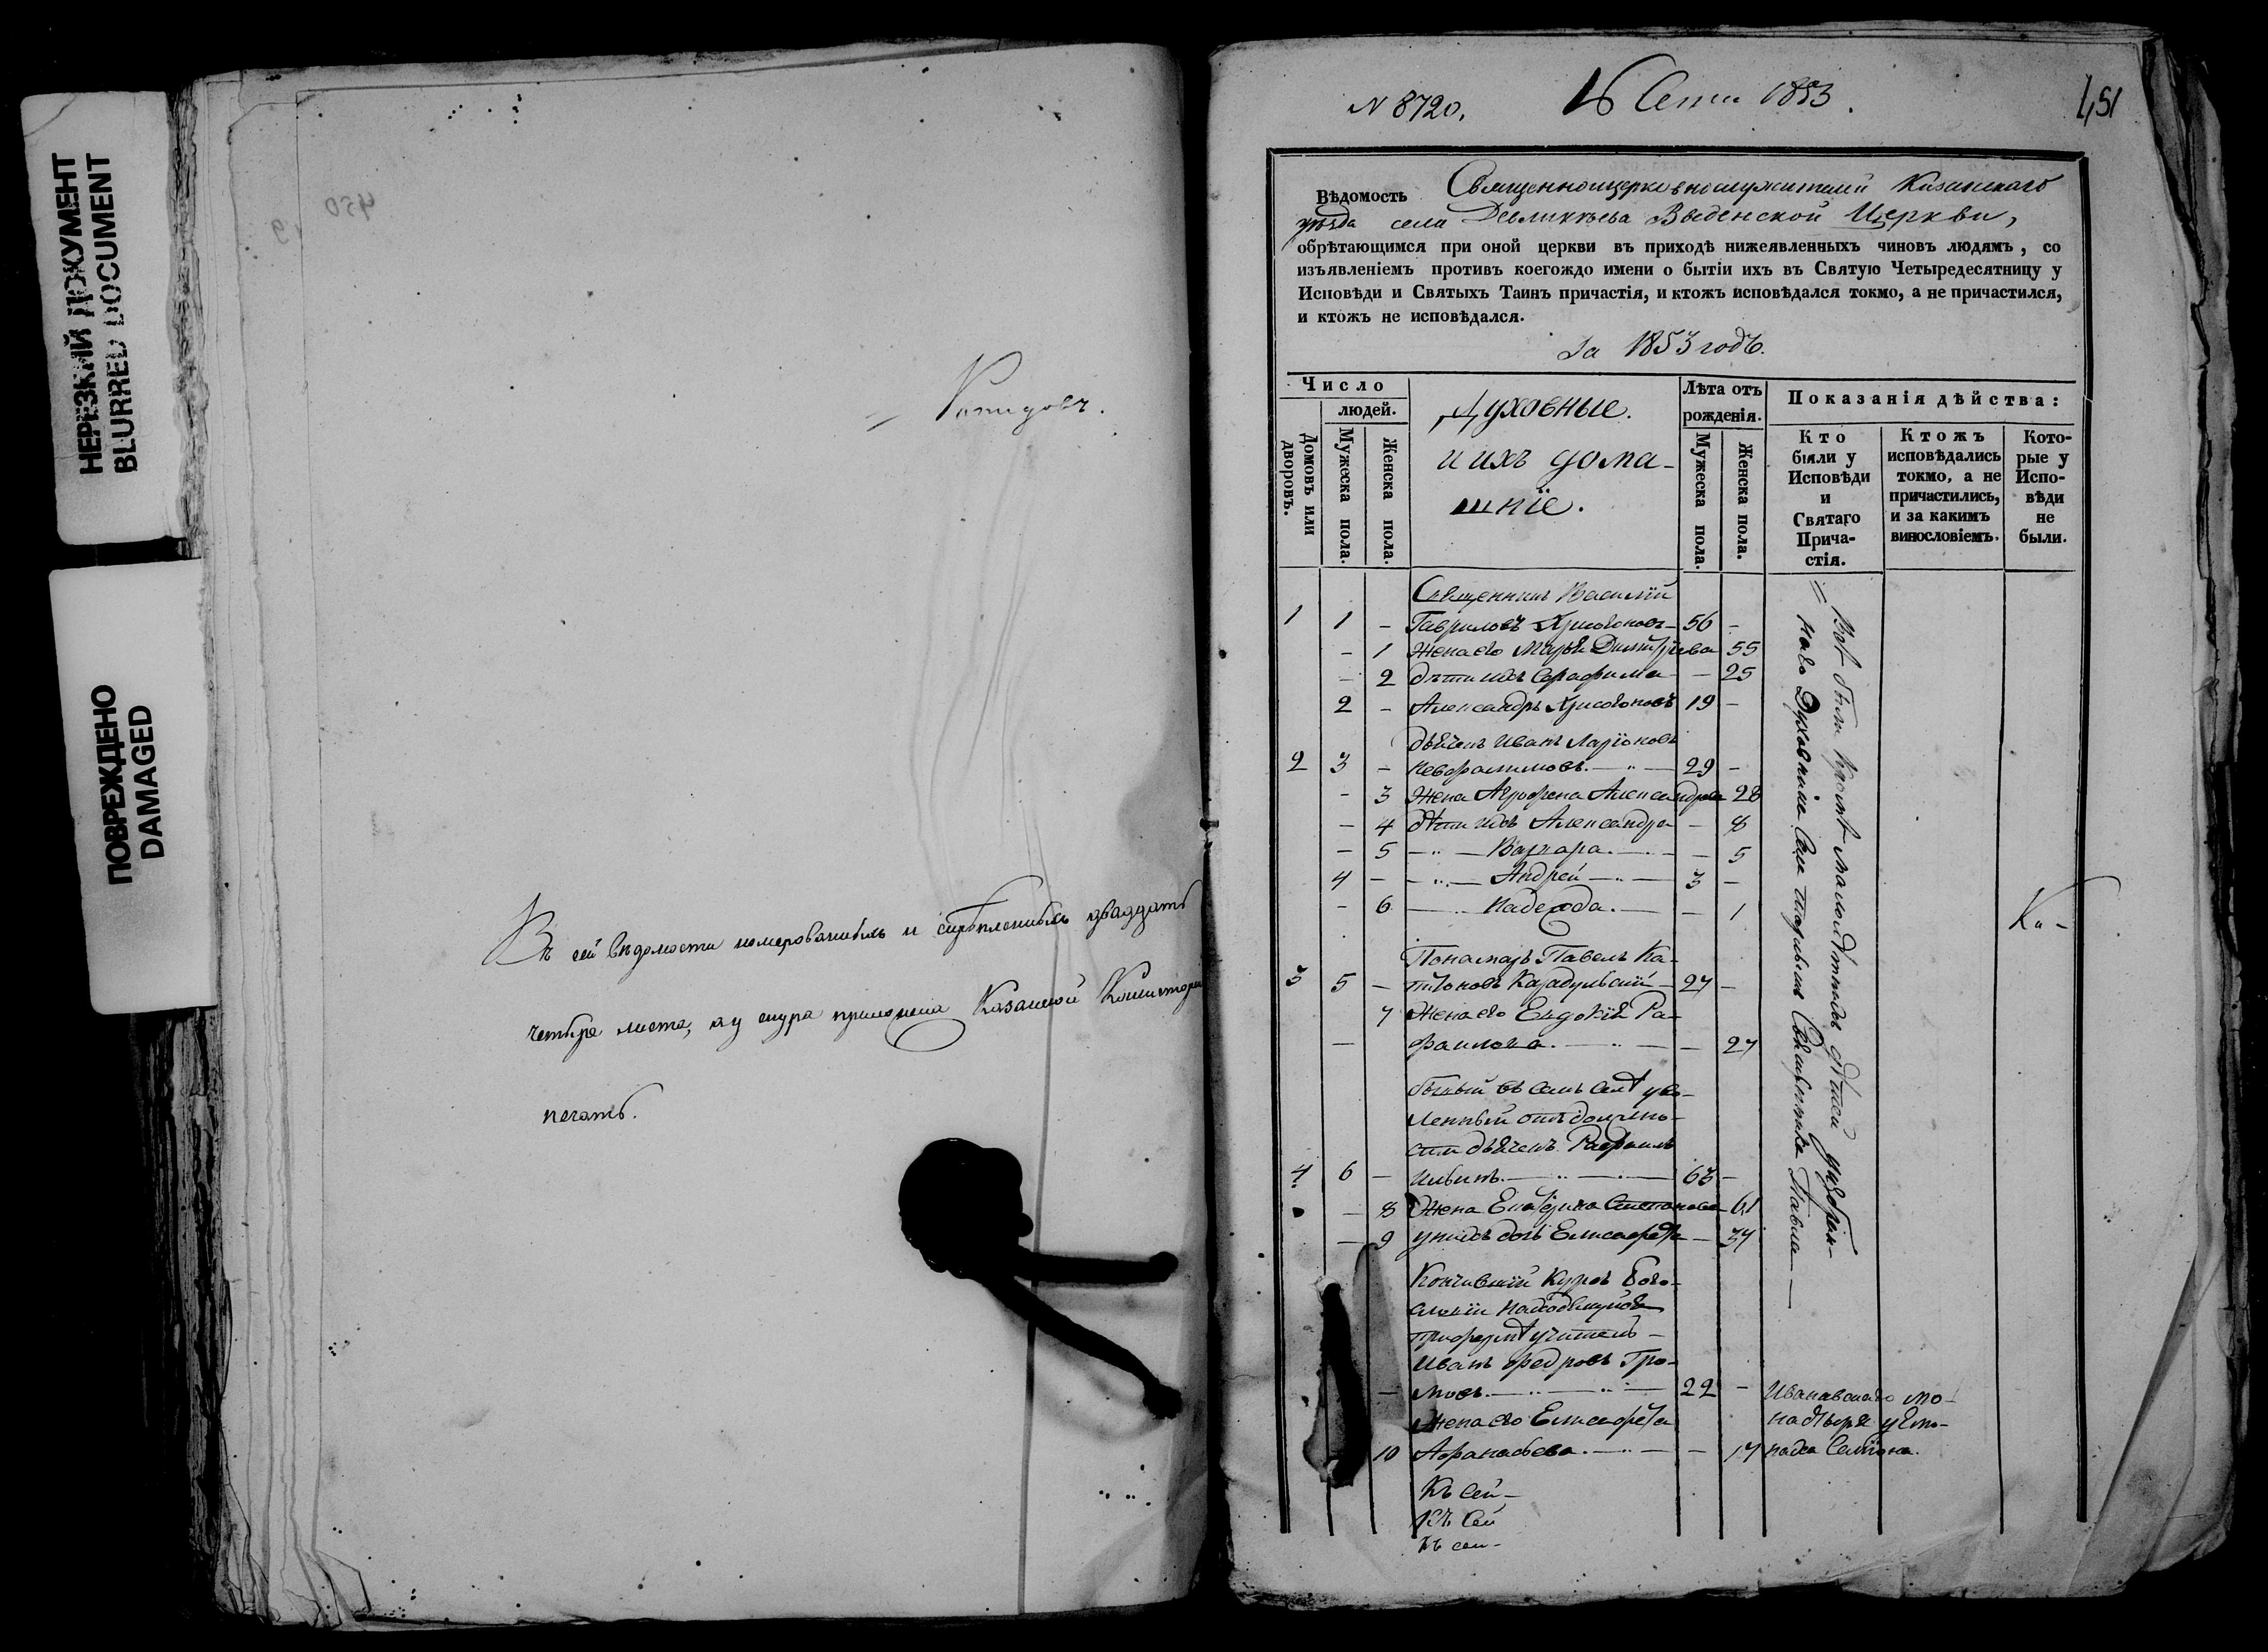 НЕРЕЗКИЙ ДОКУМЕНТ
BLURRED DOCUMENT
ПОВРЕЖДЕНО
DAMAGED
450
Въ сей вѣдомости номерованныхъ и скрѣпленныхъ двадцать
четыре листа, а у снура приложена Казанской Консисторіи
печать.
N 8720.
16 Сент 1853.
451
Вѣдомость Священноцерковнослужителей Казанскаго
уѣзда села Введенской Церкви,
обрѣтающимся при оной церкви въ приходѣ нижеявленныхъ чиновъ людямъ, со
изъявленіемъ противъ коегождо имени о бытіи ихъ въ Святую Четыредесятницу у
Исповѣди и Святыхъ Таинъ причастія, и ктожъ исповѣдался токмо, а не причастился,
и ктожъ не исповѣдался.
За 1853 годъ.
Число
людей.
Домовъ или дворовъ.
Мужеска пола.
Женска пола.
Духовные.
и ихъ дома-
шніе.
Лѣта отъ
рожденія.
Мужеска пола.
Женска пола.
Показанія дѣйства:
Кто
были у
Исповѣди
и
Святаго
Прича-
стія.
Ктожъ
исповѣдались
токмо, а не
причастились,
и за какимъ
винословіемъ.
Кото-
рые у
Испо-
вѣди
не
были.
Священникъ Василій
1 1 - Гавриловъ Хрисогоновъ - 56 -
- 1 Жена его Марья Димитріева 55
- 2 дѣти ихъ Серафима - - 25
2 - Александръ Хрисогоновъ 19 -
дьячекъ Иванъ Ларіоновъ
2 3 - 29 -
- 3 Жена Агрофена Александрова 28
- 4 дѣти ихъ Александра - 8
- 5 Варвара. - 5
4 - Андрей 3 -
- 6 Надежда. - 1
Понамарь Павелъ Ка-
3 5 - питоновъ 27 -
7 Жена его Евдокія Ра-
- фаилова. - 27
бывый въ семъ селѣ уво-
ленный отъ должно-
сти дьячекъ Рафаилъ
4 6 - Ильинъ. 63 -
- 8 Жена Екатерина Степанова 61
- 9 у нихъ дочь Елисавета - 37
Кончившій Курсъ Бого-
словіи находящійся
учитель
Иванъ Федровъ Гро-
- мовъ. 22 -
Жена его Елисавета
10 Афанасьева. - 17
Всѣ были кромѣ малолѣтныхъ дѣтей у избран-
наго Духовника Священника Павла
монастыря
Ка-
Къ сей -
Къ сей
Къ сей -